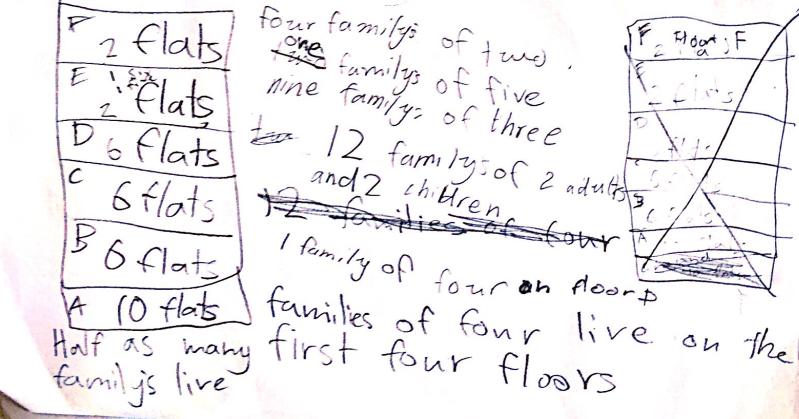 F 2 flats
E 2 flats
D 6 flats
C 6 flats
B 6 flats
A 10 flats
Half as many
family's live
four family's of two.
one familys of five
nine family's of three
12 familys of 2 adults
and 2 children
12 families of four
1 family of four on floor D
families of four live on the
first four floors
F 2 F
E 2 flats
D flats
C 6
B 6 flats
A